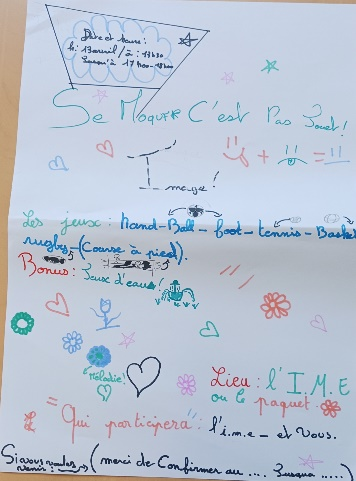 Date et heure:
le: 13 avril / à : 13h30
Jusqu'à 17h00-18h00
Se Moquer C'est Pas Jouet!
I
mage!
Les jeux: hand-Ball - foot - tennis - Basket
rugby - (Course à pied).
Bonus: Jeux d'eau!
Mélodie!
Lieu: l'I.M.E
ou le paquet.
= Qui participera": l'i.m.e - et Vous.
Si vous voulez
venir: → (merci de Confirmer au .... Jusqua .....)